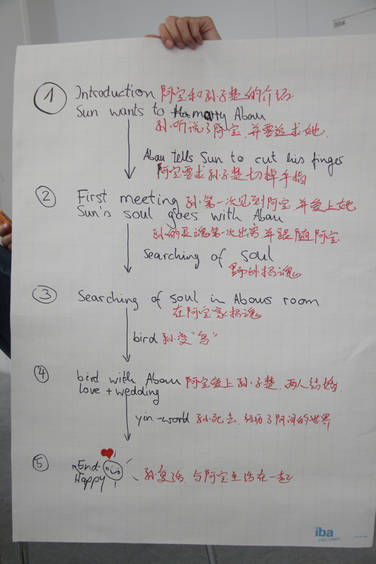 ① Introduction 阿宝和孙子楚的介绍
Sun wants to marry Abau
孙听说了阿宝,并要追求她
Abau tells Sun to cut his finger
阿宝要求孙子楚切掉手指
② First meeting 孙第一次见到阿宝,并爱上她
Sun's soul goes with Abau
孙的灵魂第一次出窍并跟随阿宝
Searching of soul
野外招魂
③ Searching of soul in Abaus room
在阿宝家招魂
bird 孙变"鸟"
④ bird with Abau 阿宝爱上孙子楚,两人结婚
love + wedding
yin-world 孙死去,经历了阴间的世界
⑤ End
Happy
孙复活,与阿宝生活在一起
iba